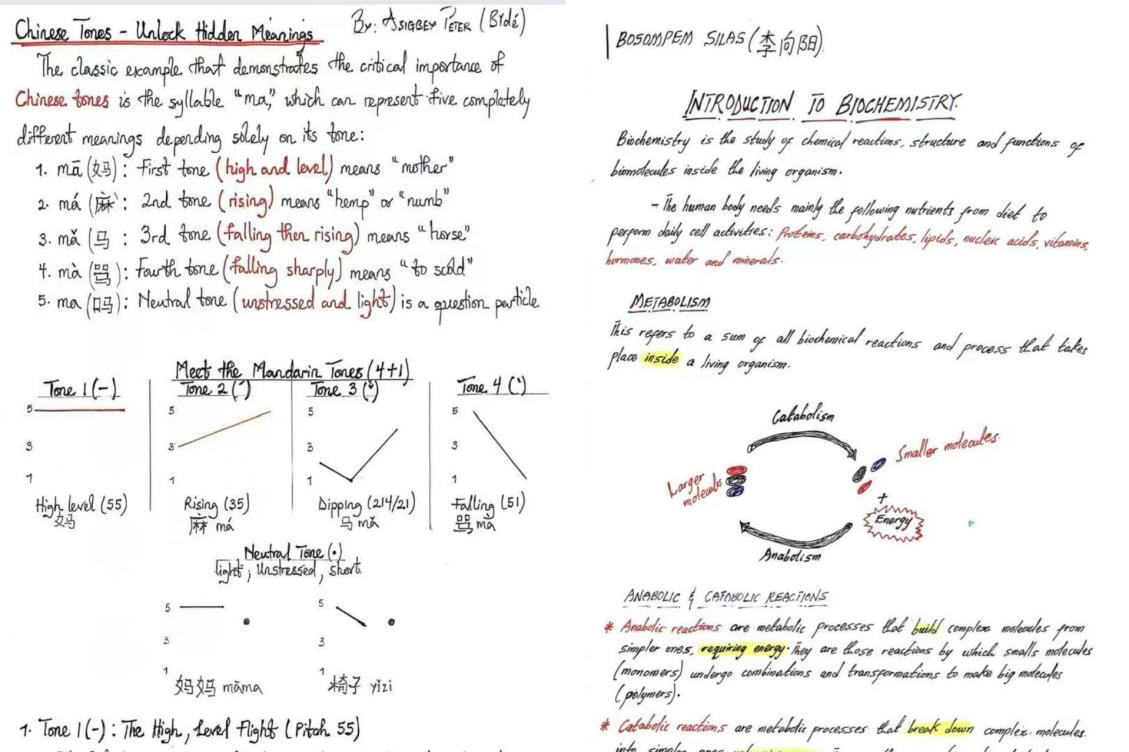 Chinese Tones - Unlock Hidden Meanings
By: Asigbey Peter (Bídé)
The classic example that demonstrates the critical importance of
Chinese tones is the syllable "ma," which can represent five completely
different meanings depending solely on its tone:
1. mā (妈): First tone (high and level) means "mother"
2. má (麻): 2nd tone (rising) means "hemp" or "numb"
3. mǎ (马): 3rd tone (falling then rising) means "horse"
4. mà (骂): Fourth tone (falling sharply) means "to scold"
5. ma (吗): Neutral tone (unstressed and light) is a question particle
Meet the Mandarin Tones (4+1)
Tone 1 (-)
5
3
1
High level (55)
妈
Tone 2 (ˊ)
5
3
1
Rising (35)
麻 má
Tone 3 (ˇ)
5
3
1
Dipping (214/21)
马 mǎ
Tone 4 (ˋ)
5
3
1
Falling (51)
骂 mà
Neutral Tone (•)
light, unstressed, short
5
3
1
妈妈 māma
5
3
1
椅子 yǐzi
1. Tone 1 (-): The High, Level Flight (Pitch 55)
BOSOMPEM SILAS (李向阳)
INTRODUCTION TO BIOCHEMISTRY.
Biochemistry is the study of chemical reactions, structure and functions of
biomolecules inside the living organism.
- The human body needs mainly the following nutrients from diet to
perform daily cell activities: Proteins, carbohydrates, lipids, nucleic acids, vitamins,
hormones, water and minerals.
METABOLISM
This refers to a sum of all biochemical reactions and process that takes
place inside a living organism.
Catabolism
Larger
molecules
Smaller molecules
+
Energy
Anabolism
ANABOLIC & CATABOLIC REACTIONS
* Anabolic reactions are metabolic processes that build complex molecules from
simpler ones, requiring energy. They are those reactions by which smalls molecules
(monomers) undergo combinations and transformations to make big molecules
(polymers).
* Catabolic reactions are metabolic processes that break down complex molecules